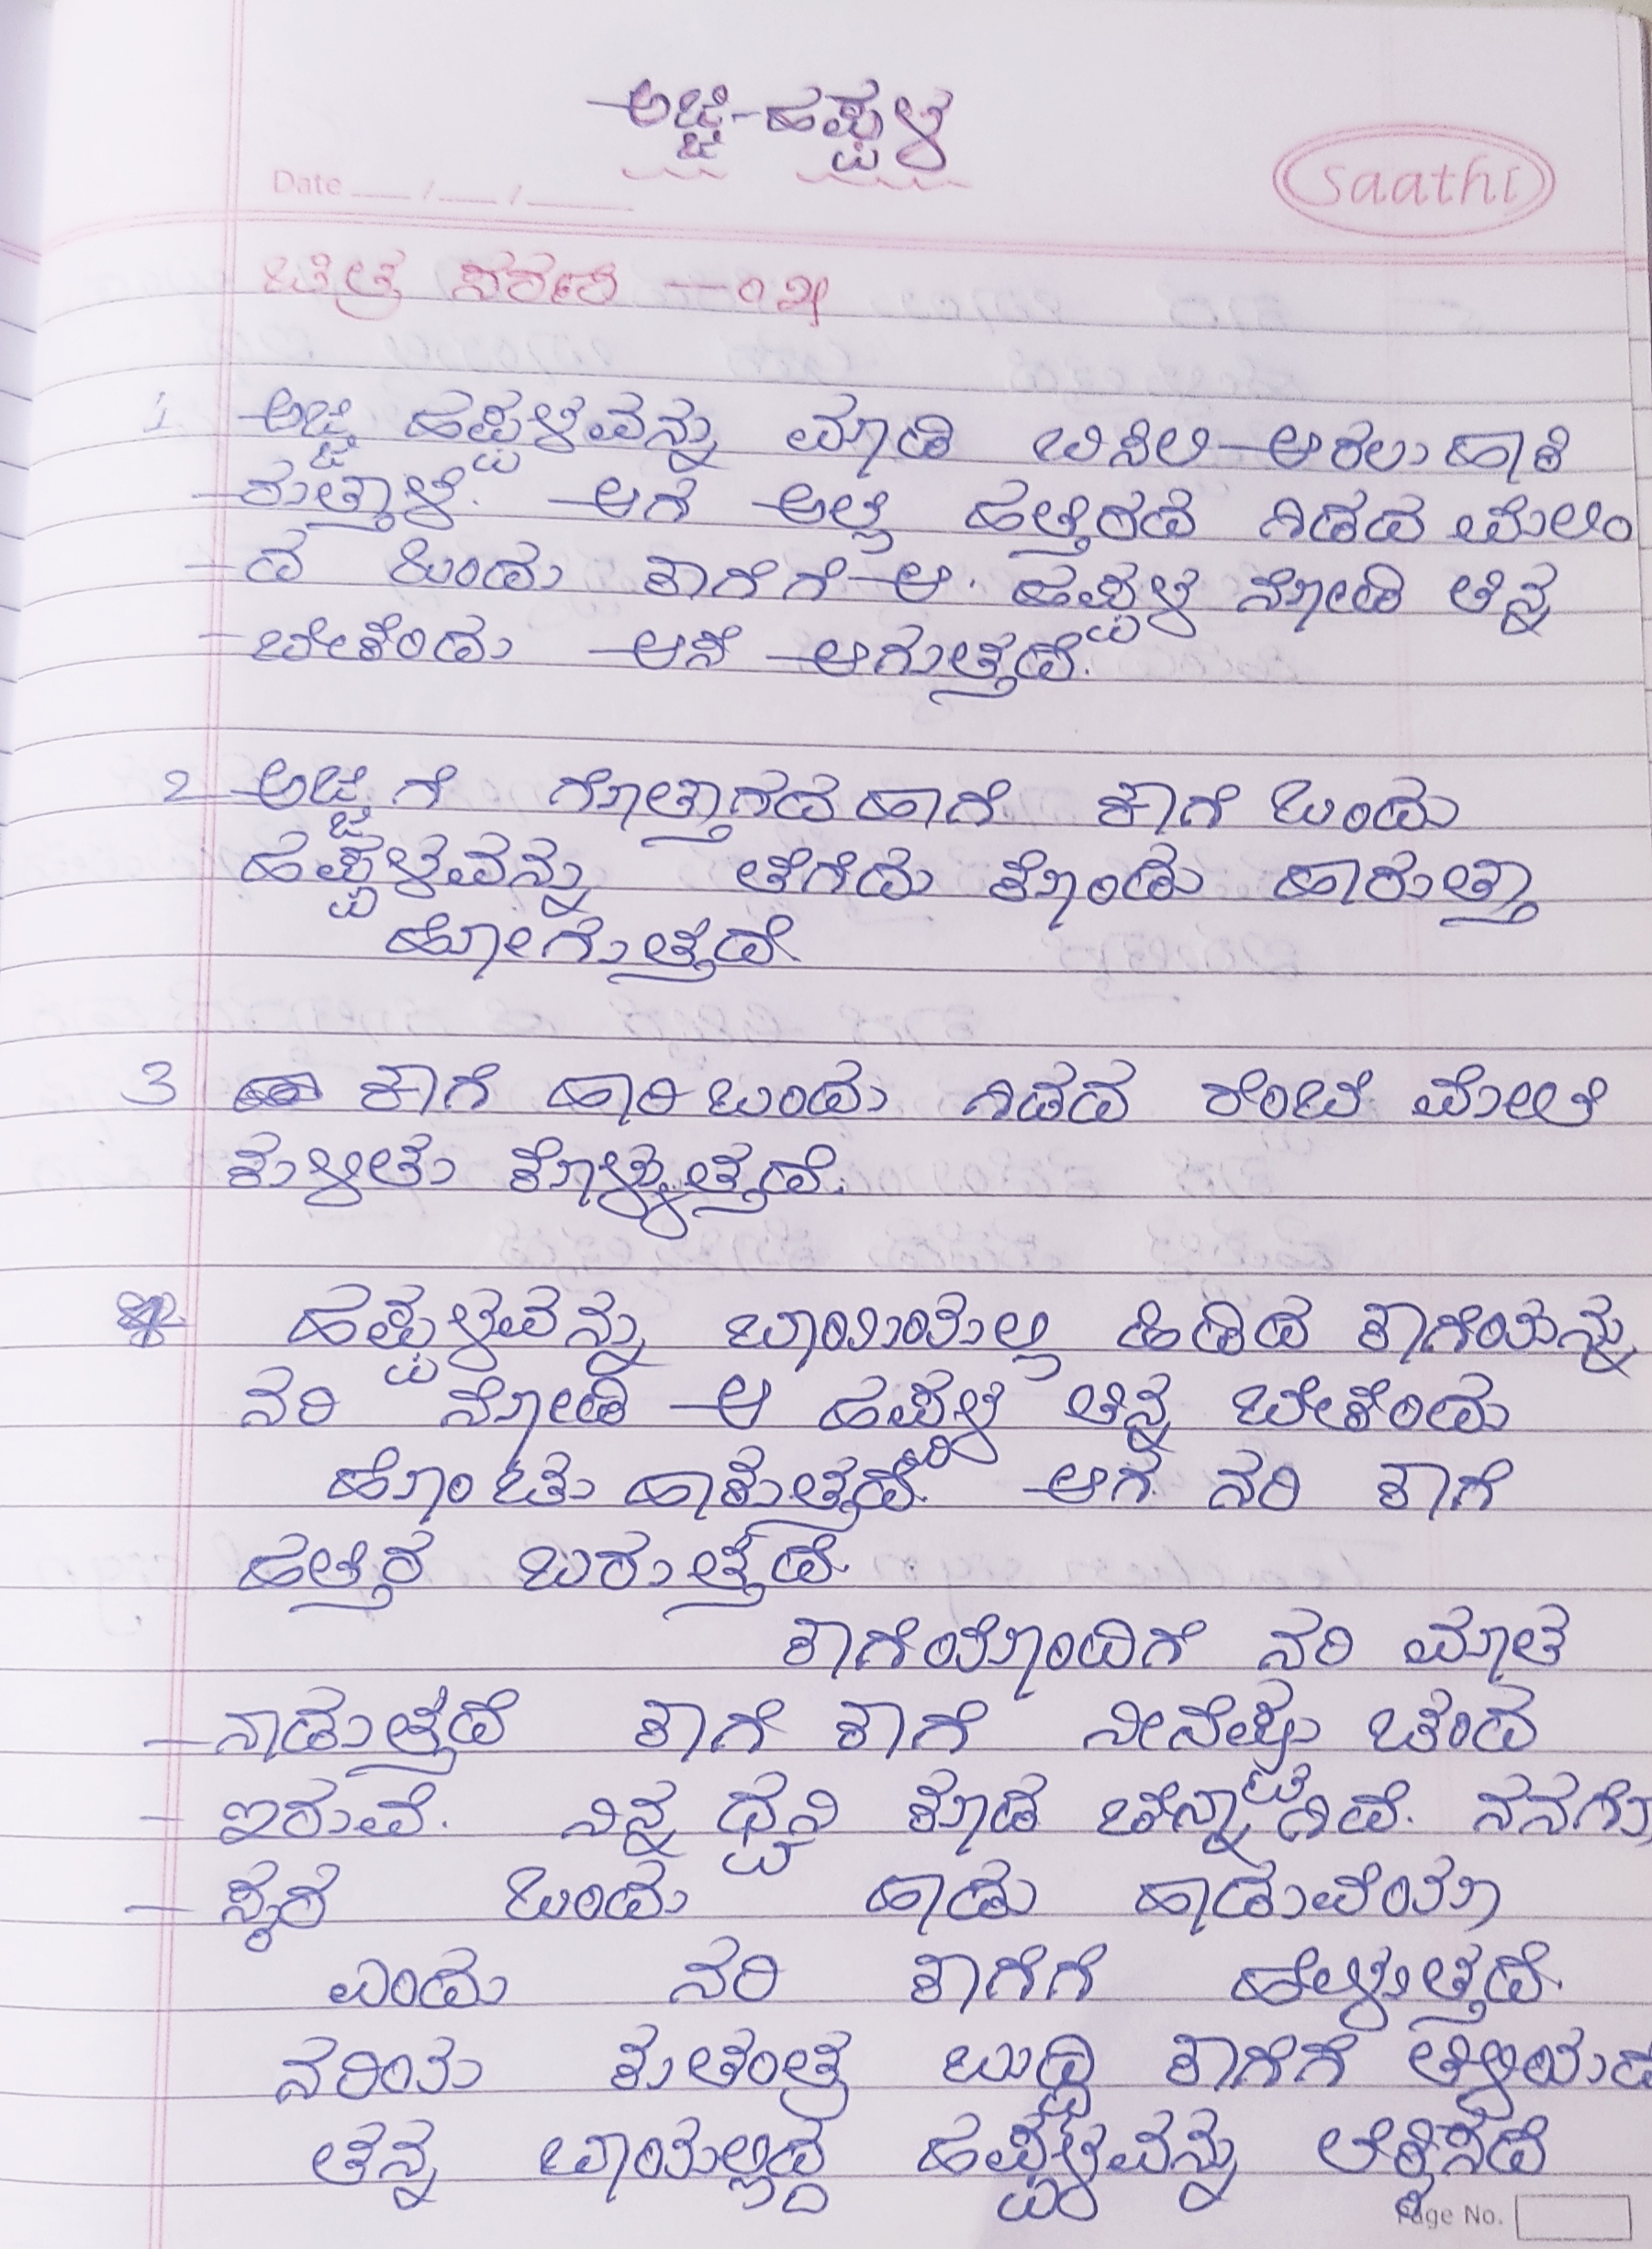 ಅಜ್ಜಿ-ಹಪ್ಪಳ
Date __/__/____
saathi
ಚಿತ್ರ ಸರಣಿ —೦೫
1 ಅಜ್ಜಿ ಹಪ್ಪಳವನ್ನು ಮಾಡಿ ಬಿಸಿಲಿ-ಆರಲು ಹಾಕಿ
-ರುತ್ತಾಳೆ. ಆಗ ಅಲ್ಲಿ ಹತ್ತಿರದ ಗಿಡದ ಮೇಲಿಂ
-ದ ಒಂದು ಕಾಗೆಗೆ ಆ. ಹಪ್ಪಳ ನೋಡಿ ತಿನ್ನ
-ಬೇಕೆಂದು ಆಸೆ ಆಗುತ್ತದೆ.
2 ಅಜ್ಜಿಗೆ ಗೊತ್ತಾಗದ ಹಾಗೆ ಕಾಗೆ ಒಂದು
ಹಪ್ಪಳವನ್ನು ತೆಗೆದು ಕೊಂಡು ಹಾರುತ್ತಾ
ಹೋಗುತ್ತದೆ.
3 ಕಾಗೆ ಹಾರಿ ಬಂದು ಗಿಡದ ಕೊಂಬೆ ಮೇಲೆ
ಕುಳಿತು ಕೊಳ್ಳುತ್ತದೆ.
ಹಪ್ಪಳವನ್ನು ಬಾಯಿಯಲ್ಲಿ ಹಿಡಿದ ಕಾಗೆಯನ್ನು
ನರಿ ನೋಡಿ ಆ ಹಪ್ಪಳ ತಿನ್ನ ಬೇಕೆಂದು
ಹೊಂಚು ಹಾಕುತ್ತದೆ. ಆಗ ನರಿ ಕಾಗೆ
ಹತ್ತಿರ ಬರುತ್ತದೆ.
ಕಾಗೆಯೊಂದಿಗೆ ನರಿ ಮಾತ
-ನಾಡುತ್ತದೆ ಕಾಗೆ ಕಾಗೆ ನೀನೆಷ್ಟು ಚೆಂದ
-ಇರುವೆ. ನಿನ್ನ ಧ್ವನಿ ಕೂಡ ಚೆನ್ನಾಗಿದೆ. ನನಗೂ
-ಸ್ಕರ ಒಂದು ಹಾಡು ಹಾಡುವೆಯಾ
ಎಂದು ನರಿ ಕಾಗೆಗೆ ಹೇಳುತ್ತದೆ.
ನರಿಯ ಕುತಂತ್ರ ಬುದ್ಧಿ ಕಾಗೆಗೆ ತಿಳಿಯದೆ
ತನ್ನ ಬಾಯಲ್ಲಿದ್ದ ಹಪ್ಪಳವನ್ನು
Page No.